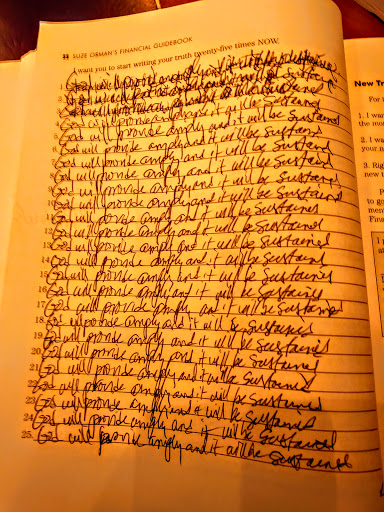 22 SUZE ORMAN'S FINANCIAL GUIDEBOOK
I want you to start writing your truth twenty-five times NOW.
1. God will provide amply and it will be
2. God will
3. God will
4. God will provide amply and it will be Sustained
5. God will provide amply and it will be Sustained
6. God will provide amply and it will be Sustained
7. God will provide amply and it will be Sustained
8. God will provide amply and it will be Sustained
9. God will provide amply and it will be Sustained
10. God will provide amply and it will be Sustained
11. God will provide amply and it will be Sustained
12. God will provide amply and it will be Sustained
13. God will provide amply and it will be Sustained
14. God will provide amply and it will be Sustained
15. God will provide amply and it will be Sustained
16. God will provide amply and it will be Sustained
17. God will provide amply and it will be Sustained
18. God will provide amply and it will be Sustained
19. God will provide amply and it will be Sustained
20. God will provide amply and it will be Sustained
21. God will provide amply and it will be Sustained
22. God will provide amply and it will be Sustained
23. God will provide amply and it will be Sustained
24. God will provide amply and it will be Sustained
25. God will provide amply and it will be Sustained
New Tr
For
1. I wa
the mo
2. I wa
your n
3. Rig
new t
to go
mem
Fina